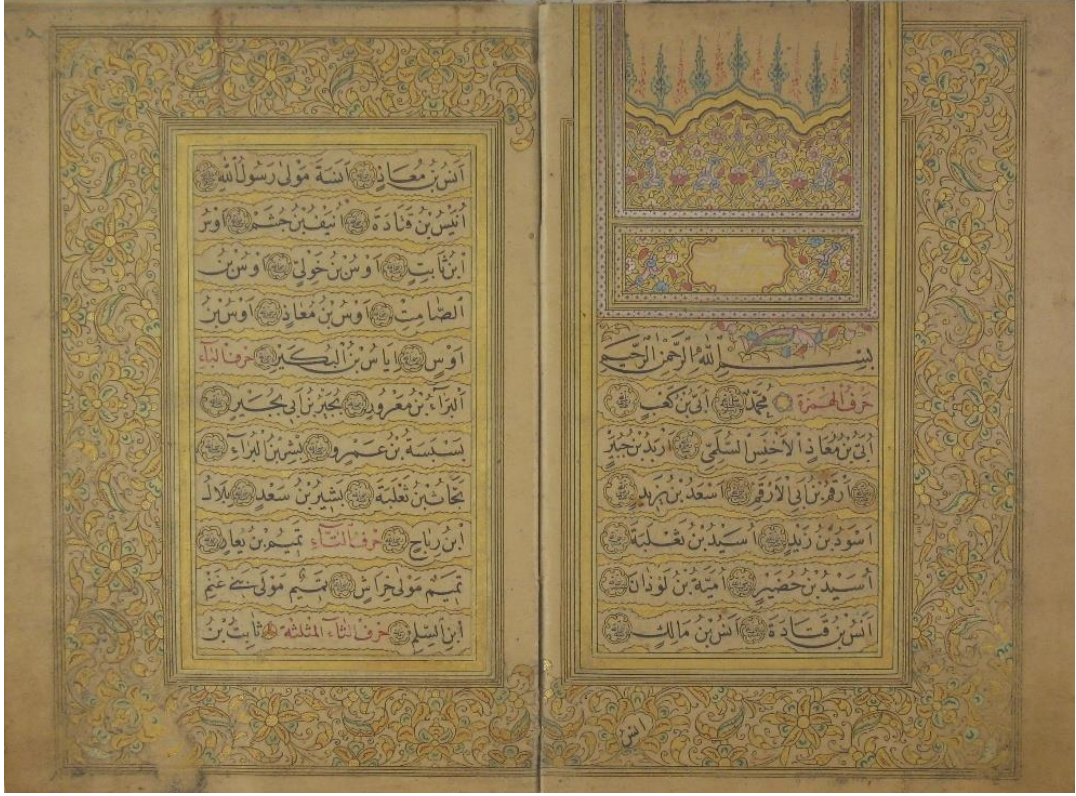 بِسْمِ اللهِ الرَّحْمٰنِ الرَّحِيمِ
حَرْفُ الْهَمْزَةِ مُحَمَّدٌ اُبَيُّ بْنُ كَعْبٍ
اُبَيُّ بْنُ مُعَاذٍ الْأَخْنَسُ السُّلَمِيُّ اَرْبَدُ بْنُ جُبَيْرٍ
اَرْقَمُ بْنُ اَبِي الْأَرْقَمِ اَسْعَدُ بْنُ يَزِيدَ
اَسْوَدُ بْنُ زَيْدٍ اُسَيْدُ بْنُ ثَعْلَبَةَ
اُسَيْدُ بْنُ حُضَيْرٍ اُمَيَّةُ بْنُ لَوْذَانَ
اَنَسُ بْنُ قَتَادَةَ اَنَسُ بْنُ مَالِكٍ
اَنَسُ بْنُ مُعَاذٍ اَنَسَةُ مَوْلٰى رَسُولِ اللهِ
اُنَيْسُ بْنُ قَتَادَةَ اُنَيْفُ بْنُ جُشَمَ اَوْسُ
ابْنُ ثَابِتٍ اَوْسُ بْنُ خَوْلِيٍّ اَوْسُ بْنُ
الصَّامِتِ اَوْسُ بْنُ مُعَاذٍ اَوْسُ بْنُ
اَوْسٍ اِيَاسُ بْنُ الْبُكَيْرِ حَرْفُ الْبَاءِ
اَلْبَرَاءُ بْنُ مَعْرُورٍ بُجَيْرُ بْنُ اَبِي بُجَيْرٍ
بَسْبَسَةُ بْنُ عَمْرٍو بِشْرُ بْنُ الْبَرَاءِ
بَحَّاثُ بْنُ ثَعْلَبَةَ بَشِيرُ بْنُ سَعْدٍ بِلَالُ
ابْنُ رَبَاحٍ حَرْفُ التَّاءِ تَمِيمُ بْنُ يُعَارٍ
تَمِيمٌ مَوْلٰى خِرَاشٍ تَمِيمٌ مَوْلٰى بَنِي غَنْمِ
ابْنِ السِّلْمِ حَرْفُ الثَّاءِ الْمُثَلَّثَةِ ثَابِتُ بْنُ
انس